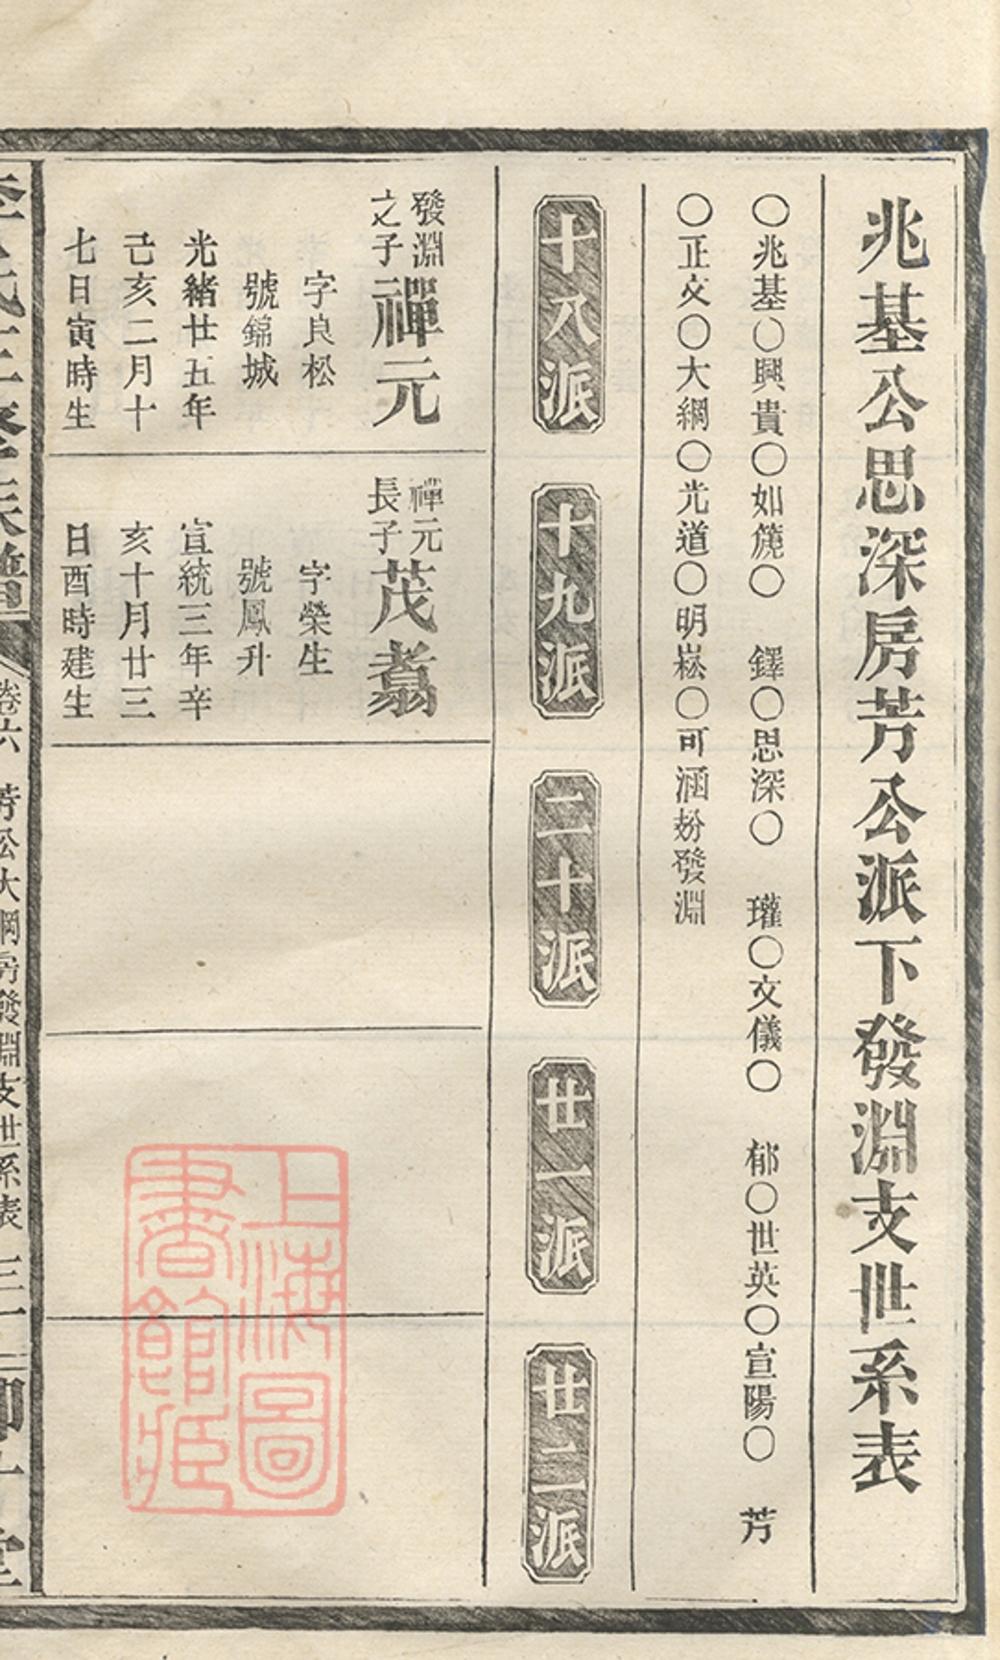 兆基公思深房芳公派下發淵支世系表
〇兆基〇興貴〇如篪〇　鐸〇思深〇　瓘〇文儀〇　郁〇世英〇宣陽〇　芳
〇正文〇大綱〇光道〇明崧〇可涵妢發淵
十八派
十九派
二十派
廿一派
廿二派
發淵之子禪元
字良松
號錦城
光緒廿五年
己亥二月十
七日寅時生
禪元長子茂翥
字榮生
號鳳升
宣統三年辛
亥十月廿三
日酉時建生
卷六　芳公大綱房發淵支世系表
上海圖書館藏